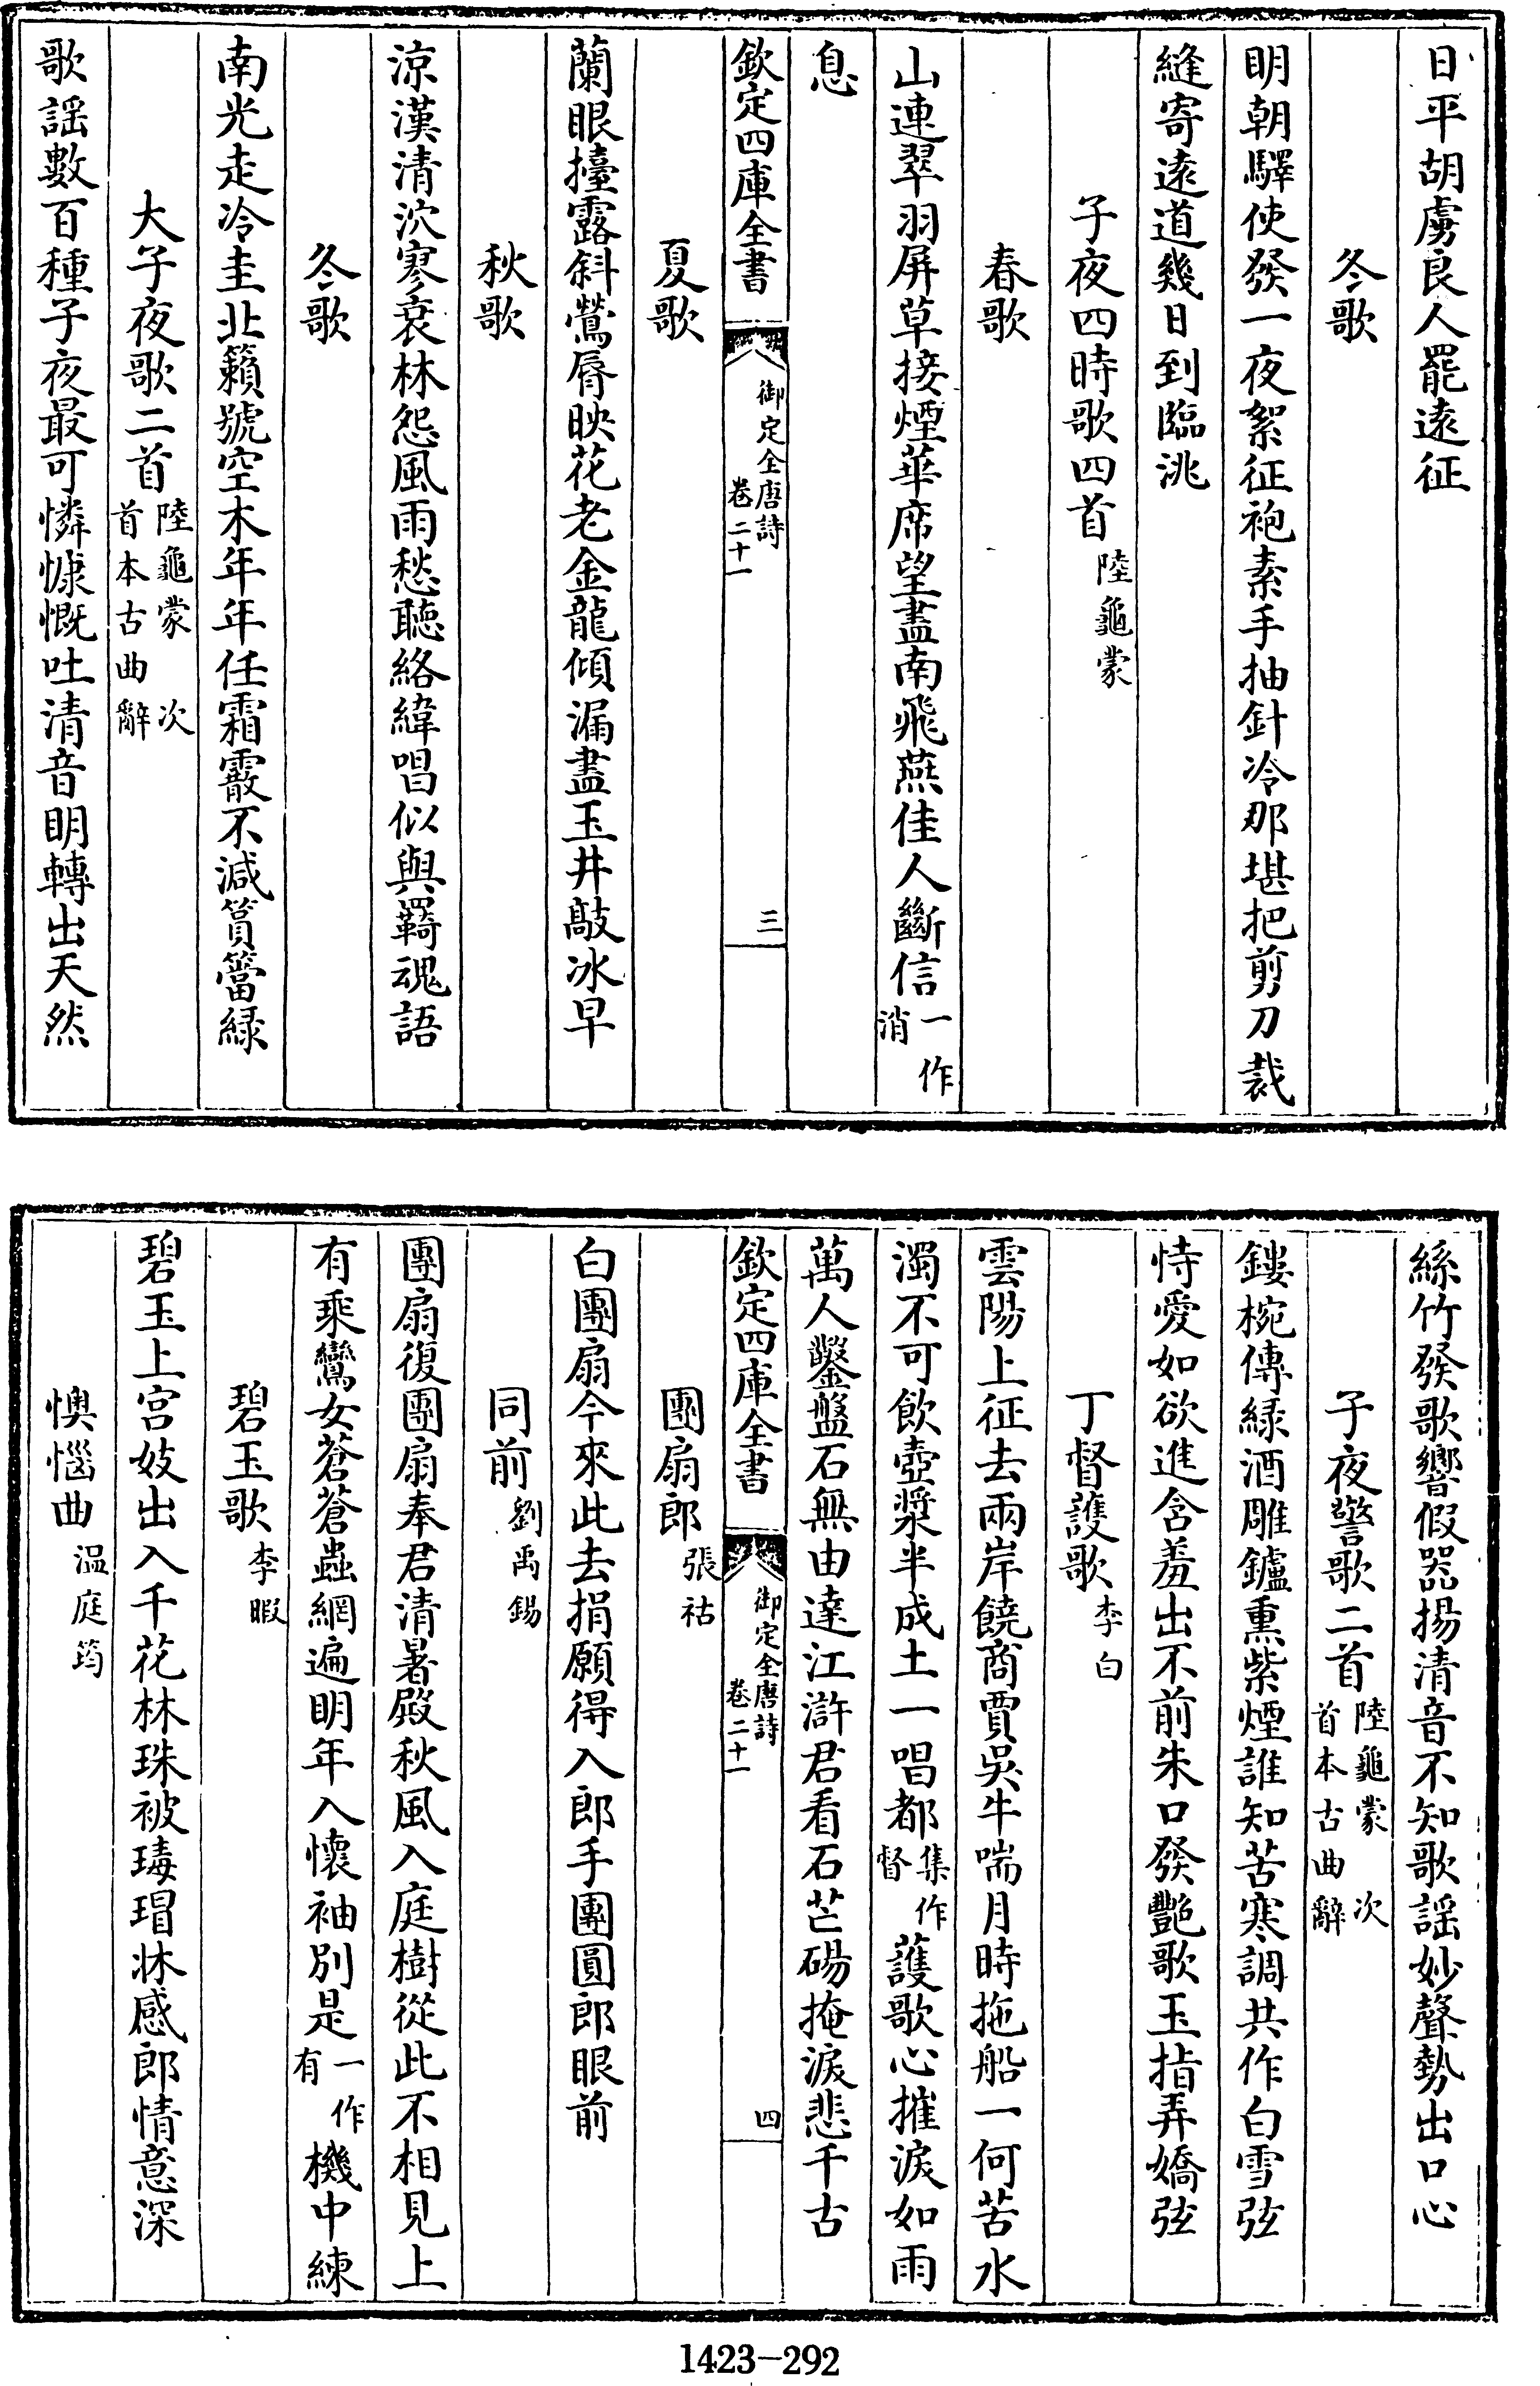 日平胡虜良人罷遠征
冬歌
明朝驛使發一夜絮征袍素手抽針冷那堪把剪刀裁
縫寄遠道幾日到臨洮
子夜四時歌四首陸龜蒙
春歌
山連翠羽屏草接煙華席望盡南飛燕佳人斷信一作消
息
欽定四庫全書 御定全唐詩卷二十一 三
夏歌
蘭眼擡露斜鶯脣映花老金龍傾漏盡玉井敲冰早
秋歌
涼漢清泬寥衰林怨風雨愁聽絡緯唱似與羇魂語
冬歌
南光走冷圭北籟號空木年年任霜霰不減篔簹緑
大子夜歌二首陸龜蒙 次首本古曲辭
歌謡數百種子夜最可憐慷慨吐清音明轉出天然
絲竹發歌響假器揚清音不知歌謡妙聲勢出口心
子夜警歌二首陸龜蒙 次首本古曲辭
鏤椀傳緑酒雕鑪熏紫煙誰知苦寒調共作白雪弦
恃愛如欲進含羞出不前朱口發艷歌玉指弄嬌弦
丁督護歌李白
雲陽上征去兩岸饒商賈吳牛喘月時拖船一何苦水
濁不可飲壺漿半成土一唱都集作督護歌心摧淚如雨
萬人鑿盤石無由達江滸君看石芒碭掩淚悲千古
欽定四庫全書 御定全唐詩卷二十一 四
團扇郎張祜
白團扇今來此去捐願得入郎手團圓郎眼前
同前劉禹錫
團扇復團扇奉君清暑殿秋風入庭樹從此不相見上
有乘鸞女蒼蒼蟲網遍明年入懷袖別是一作有機中練
碧玉歌李暇
碧玉上宫妓出入千花林珠被瑇瑁牀感郎情意深
懊惱曲温庭筠
1423-292